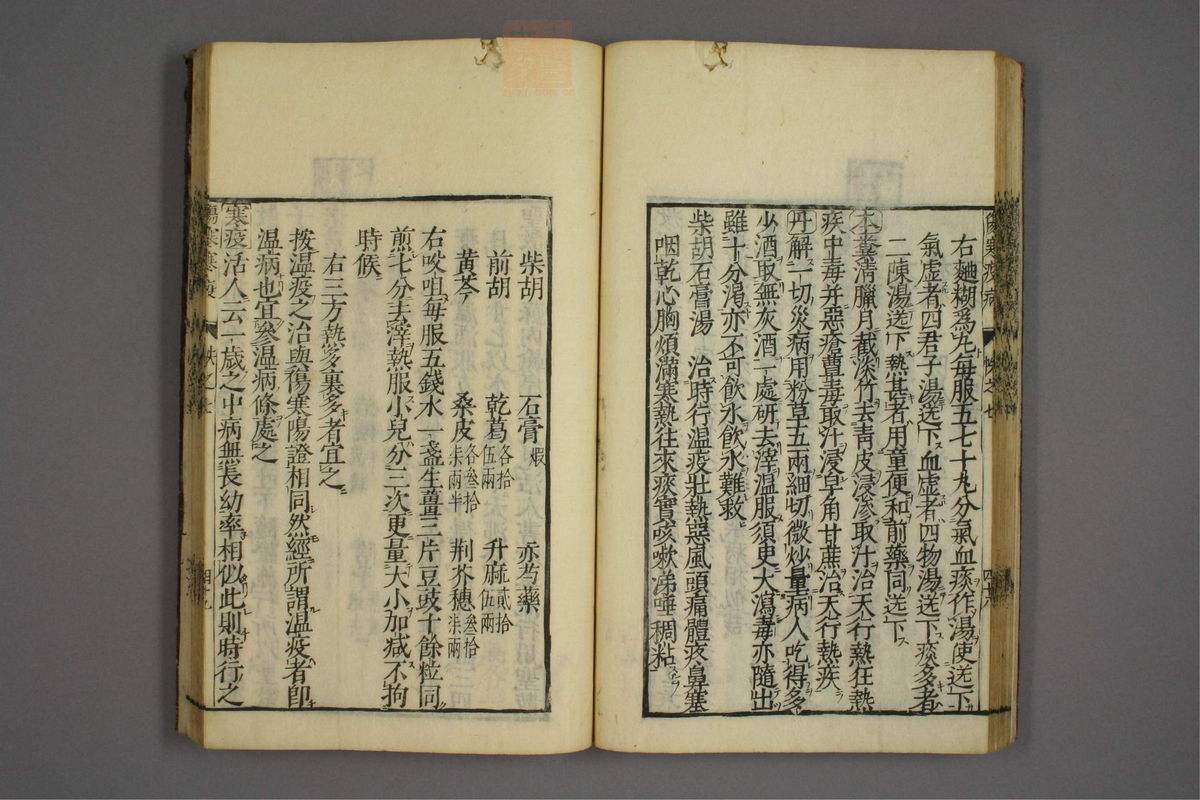 右麯糊爲丸每服五七十丸分氣血痰作湯使送下
氣虛者四君子湯送下血虛者四物湯送下痰多者
二陳湯送下熱甚者用童便和前藥同送下
本囊清臘月截淡竹去青皮浸滲取汁治天行熱狂熱
疾中毒并惡瘡曹毒取汁浸皂角甘蔗治天行熱疾
丹解一切災病用粉草五兩細切微炒量病人吃得多
少酒取無灰酒一處研去滓温服須史大瀉毒亦隨出
雖十分渴亦不可飲水飲水難救
柴胡石膏湯 治時行温疫壯熱惡風頭痛體疼鼻塞
咽乾心胸煩滿寒熱往來痰實咳嗽涕唾稠粘
柴胡 石膏煆 赤芍藥
前胡 乾葛各拾伍兩 升麻貳拾伍兩
黄芩 桑皮各叁拾柒兩半 荆芥穗叁拾柒兩
右㕮咀每服五錢水一盞生薑三片豆豉十餘粒同
煎七分去滓熱服小兒分三次更量大小加减不拘
時候
右三方熱多裏多者宜之
按温疫之治與傷寒陽證相同然經所謂温疫者卽
温病也宜參温病條處之
寒疫活人云一歲之中病無長幼率相似此則時行之
傷寒寒疫 帙之七 四十九